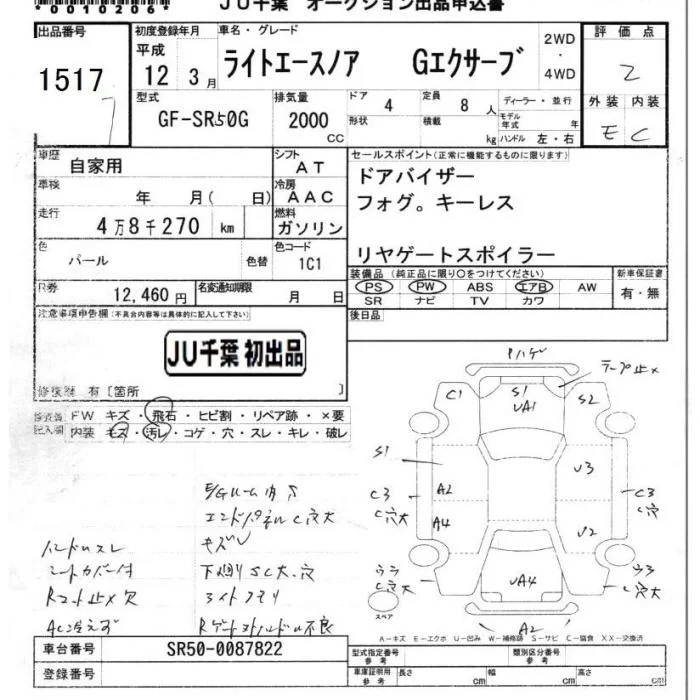 *0010206*
JU千葉 オークション出品申込書
出品番号
1517
初度登録年月
平成
12年 3月
車名・グレード
ライトエースノア Gエクサーブ
2WD
・
4WD
評価点
2
外装 内装
E C
型式
GF-SR50G
排気量
2000
CC
ドア 4
定員 8 人
形状
積載 kg
ディーラー・並行
モデル年式 年
ハンドル 左・右
車歴
自家用
シフト
AT
車検
年 月( 日)
冷房
AAC
走行
4万8千270 km
燃料
ガソリン
色
パール
色替
色コード
1C1
R券
12,460円
名変通知期限
月 日
セールスポイント(正常に機能するものに限ります)
ドアバイザー
フォグ。キーレス
リヤゲートスポイラー
装備品(純正品に限り○をつけてください)
PS PW ABS エアB AW
SR ナビ TV カワ
新車保証書
有・無
後日品
注意事項申告欄(不具合内容等は具体的に記入して下さい)
JU千葉 初出品
修復歴 有[箇所 ]
検査員
記入欄
FW キズ・飛石・ヒビ割・リペア跡・×要
内装 モズ・汚レ・コゲ・穴・スレ・キレ・破レ
E/Gルーム内S
エンドパネルC穴大
キズV
ハンドルスレ
シートカバー付
下廻りSC大、穴
ACガス
Pハゲ
テープ止×
C1
S1
UA1
S2
S1
A2
U3
C3
C穴大
C3
C穴
A4
U2
ウラ
C穴大
UA4
ウラ
C穴大
A2
スペア
A-キズ E-エクボ U-凹み W-補修跡 S-サビ C-腐食 XX-交換済
車台番号
SR50-0087822
登録番号
型式指定番号
参考
類別区分番号
参考
車庫証明用
参考
長さ cm
幅 cm
高さ cm